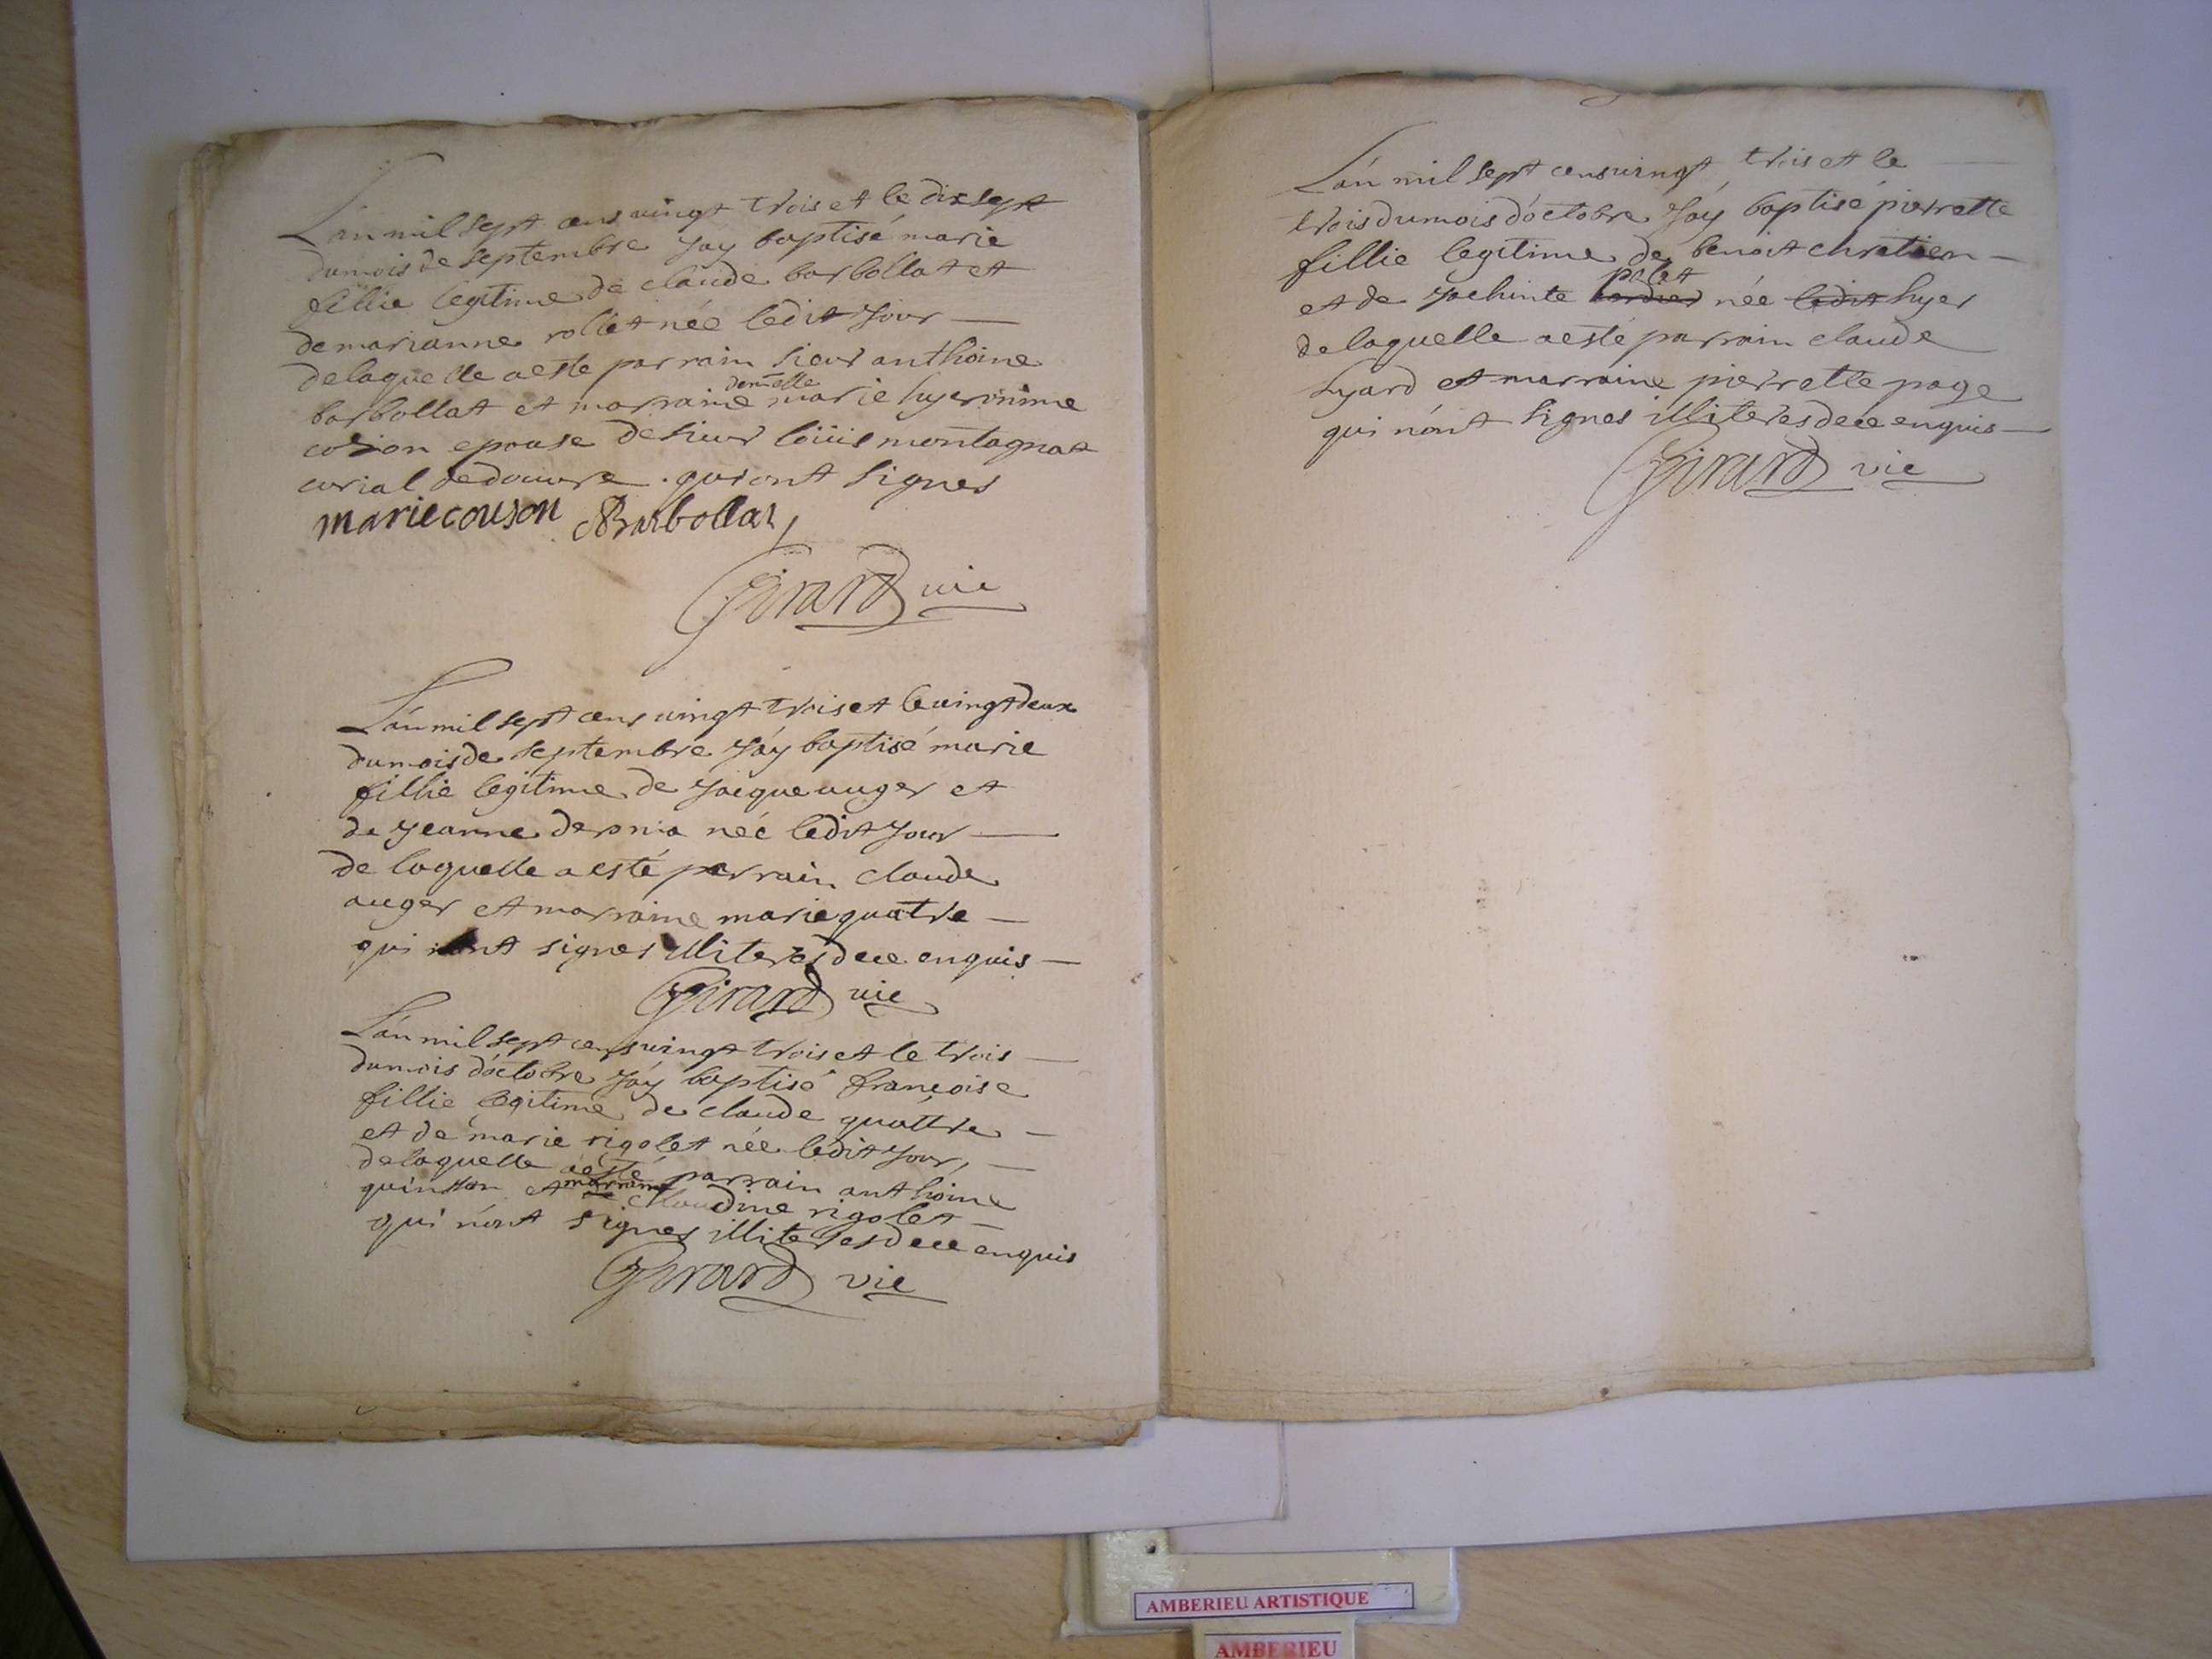 L'an mil sept cens vingt trois et le dix sept
du mois de septembre Jay baptisé marie
fillie legitime de claude barbollat et
de marianne rollet née ledit Jour
de laquelle a esté parrain sieur anthoine
barbollat et marraine demelle marie hyeronime
epouse de sieur loüis montagnat
curial de douvre. qui ont signes
marie couson Barbollat
Girard vic
L'an mil sept cens vingt trois et le vingt deux
du mois de septembre J'ay baptisé marie
fillie legitime de Jacque auger et
de Jeanne née ledit Jour
de laquelle a esté parrain claude
auger et marraine marie quatre
qui n'ont signes illiteres de ce enquis
Girard vic
L'an mil sept cens vingt trois et le trois
du mois d'octobre J'ay baptisé françoise
fillie legitime de claude quattre
et de marie rigolet née ledit Jour,
de laquelle a esté parrain anthoine
quinson et marraine claudine rigolet
qui n'ont signes illiteres de ce enquis
Girard vic
L'an mil sept cens vingt trois et le
trois du mois d'octobre J'ay baptisé pierrette
fillie legitime de benoit chretien
et de Jachinte née ledit hyer
de laquelle a esté parrain claude
hyard et marraine pierrette page
qui n'ont signes illiteres de ce enquis
Girard vic
AMBERIEU ARTISTIQUE
AMBERIEU